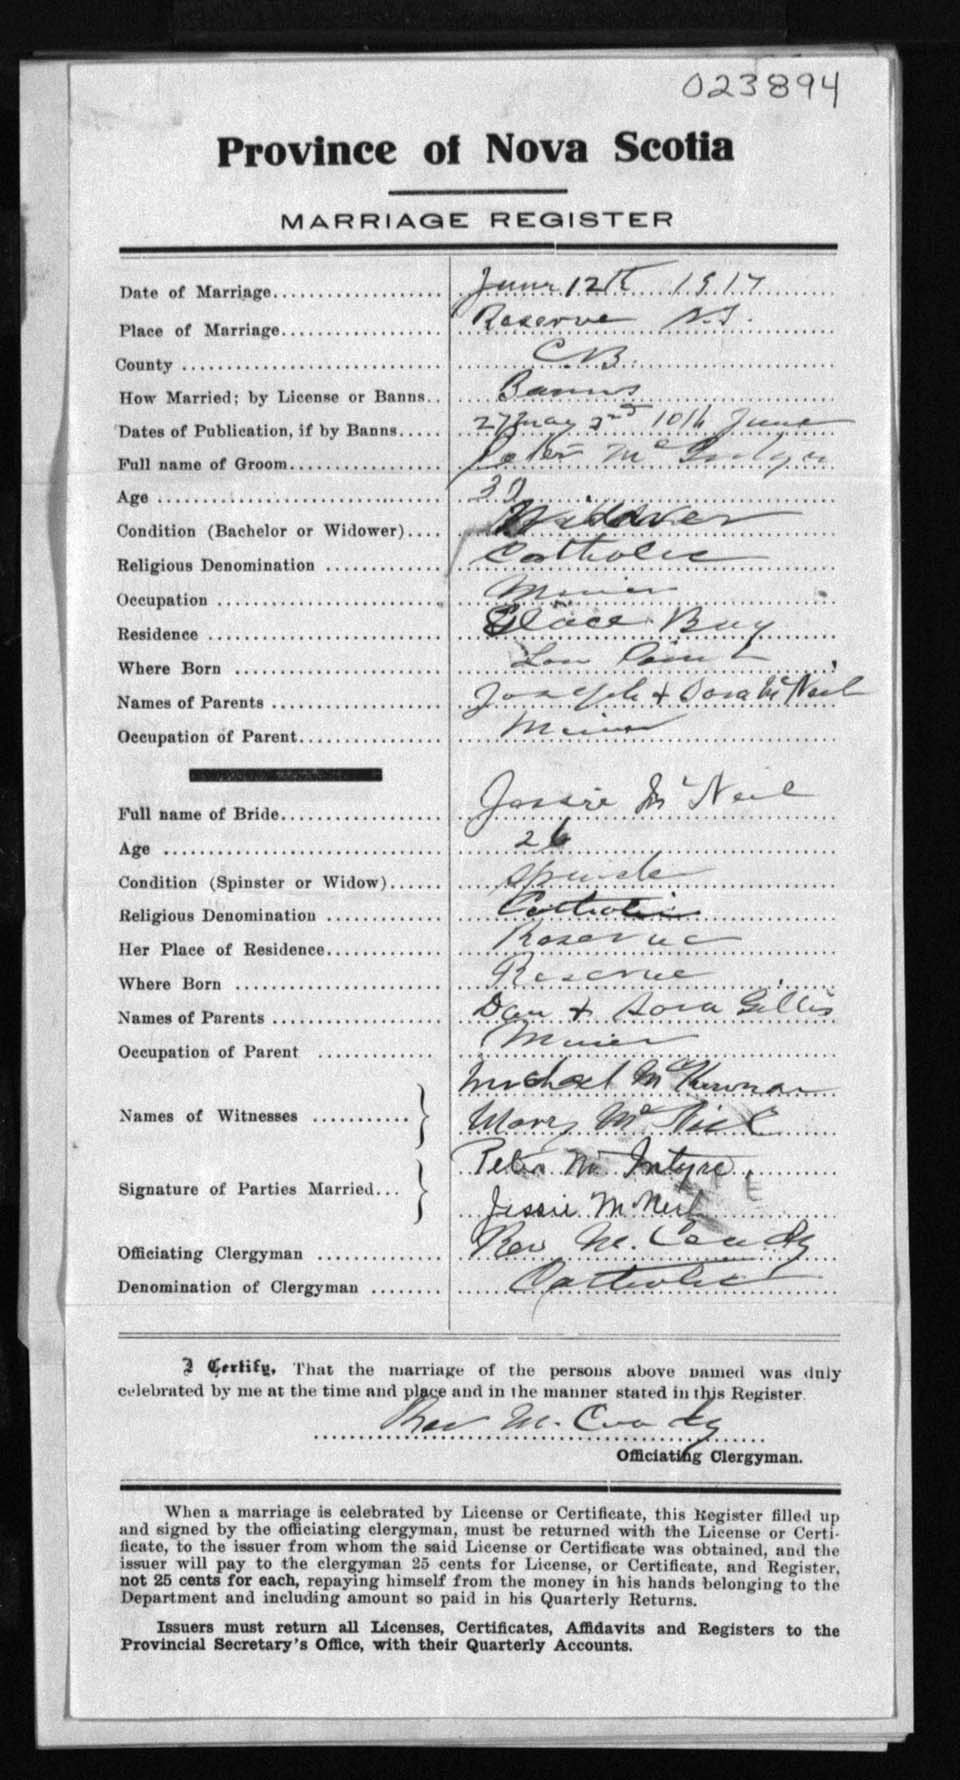 023894
Province of Nova Scotia
MARRIAGE REGISTER
Date of Marriage June 12th 1917
Place of Marriage Reserve N.S.
County C.B.
How Married; by License or Banns Banns
Dates of Publication, if by Banns 27 May 3rd 10th June
Full name of Groom Peter McIntyre
Age
Condition (Bachelor or Widower) Widower
Religious Denomination Catholic
Occupation Miner
Residence Glace Bay
Where Born Low Point
Names of Parents Joseph + Dora McNeil
Occupation of Parent Miner
Full name of Bride Jessie McNeil
Age 26
Condition (Spinster or Widow)
Religious Denomination Catholic
Her Place of Residence Reserve
Where Born Reserve
Names of Parents Dan + Sora Gillis
Occupation of Parent Miner
Michael Mc
Names of Witnesses
Mary McNeil
Peter McIntyre
Signature of Parties Married
Jessie McNeil
Officiating Clergyman Rev M. Coady
Denomination of Clergyman Catholic
I Certify, That the marriage of the persons above named was duly
celebrated by me at the time and place and in the manner stated in this Register.
Rev M. Coady
Officiating Clergyman.
When a marriage is celebrated by License or Certificate, this Register filled up
and signed by the officiating clergyman, must be returned with the License or Certi-
ficate, to the issuer from whom the said License or Certificate was obtained, and the
issuer will pay to the clergyman 25 cents for License, or Certificate, and Register,
not 25 cents for each, repaying himself from the money in his hands belonging to the
Department and including amount so paid in his Quarterly Returns.
Issuers must return all Licenses, Certificates, Affidavits and Registers to the
Provincial Secretary's Office, with their Quarterly Accounts.